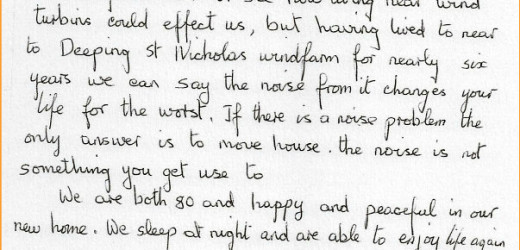 how living near wind
turbins could effect us, but having lived to near
to Deeping St Nicholas windfarm for nearly six
years we can say the noise from it changes your
life for the worst. If there is a noise problem the
only answer is to move house. the noise is not
something you get use to
We are both 80 and happy and peaceful in our
new home. We sleep at night and are able to enjoy life again